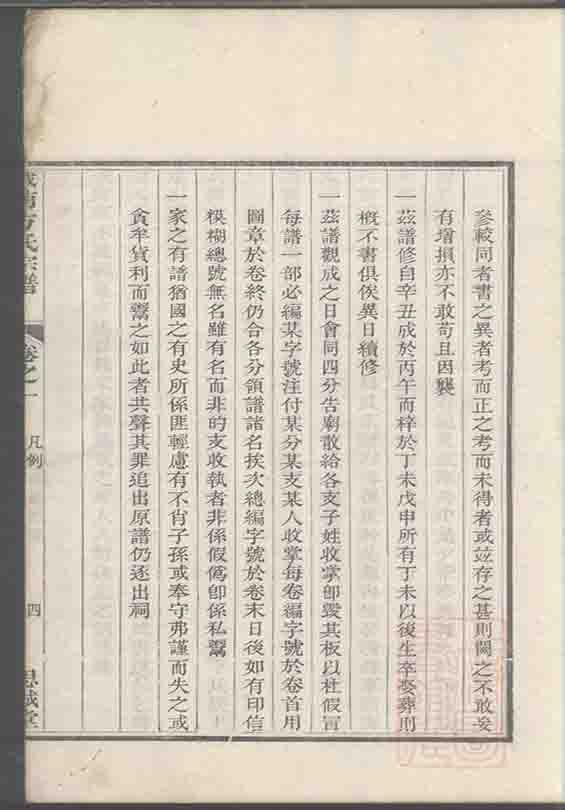 參較同者書之異者考而正之考而未得者或竝存之甚則闕之不敢妄
有增損亦不敢苟且因襲
一茲譜修自辛丑成於丙午而梓於丁未戊申所有丁未以後生卒娶葬則
槪不書俱俟異日續修
一茲譜觀成之日會同四分告廟散給各支子姓收掌卽燬其板以杜假冒
每譜一部必編某字號注付某分某支某人收掌每卷編字號於卷首用
圖章於卷終仍合各分領譜諸名挨次總編字號於卷末日後如有印信
模糊總號無名雖有名而非的支收執者非係假僞卽係私鬻
一家之有譜猶國之有史所係匪輕慮有不肖子孫或奉守弗謹而失之或
貪牟貨利而鬻之如此者共聲其罪追出原譜仍逐出祠
方氏宗譜
卷之一
凡例
四
思誠堂